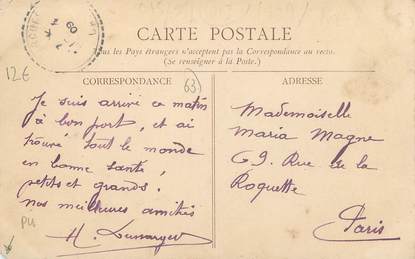 CARTE POSTALE
Tous les Pays étrangers n'acceptent pas la Correspondance au recto.
(Se renseigner à la Poste.)
12€
CORRESPONDANCE
63
Je suis arrivé ce matin
à bon port, et ai
trouvé tout le monde
en bonne santé,
petits et grands.
nos meilleures amitiés
H.
ADRESSE
Mademoiselle
Maria Magne
69 Rue de la
Roquette
Paris